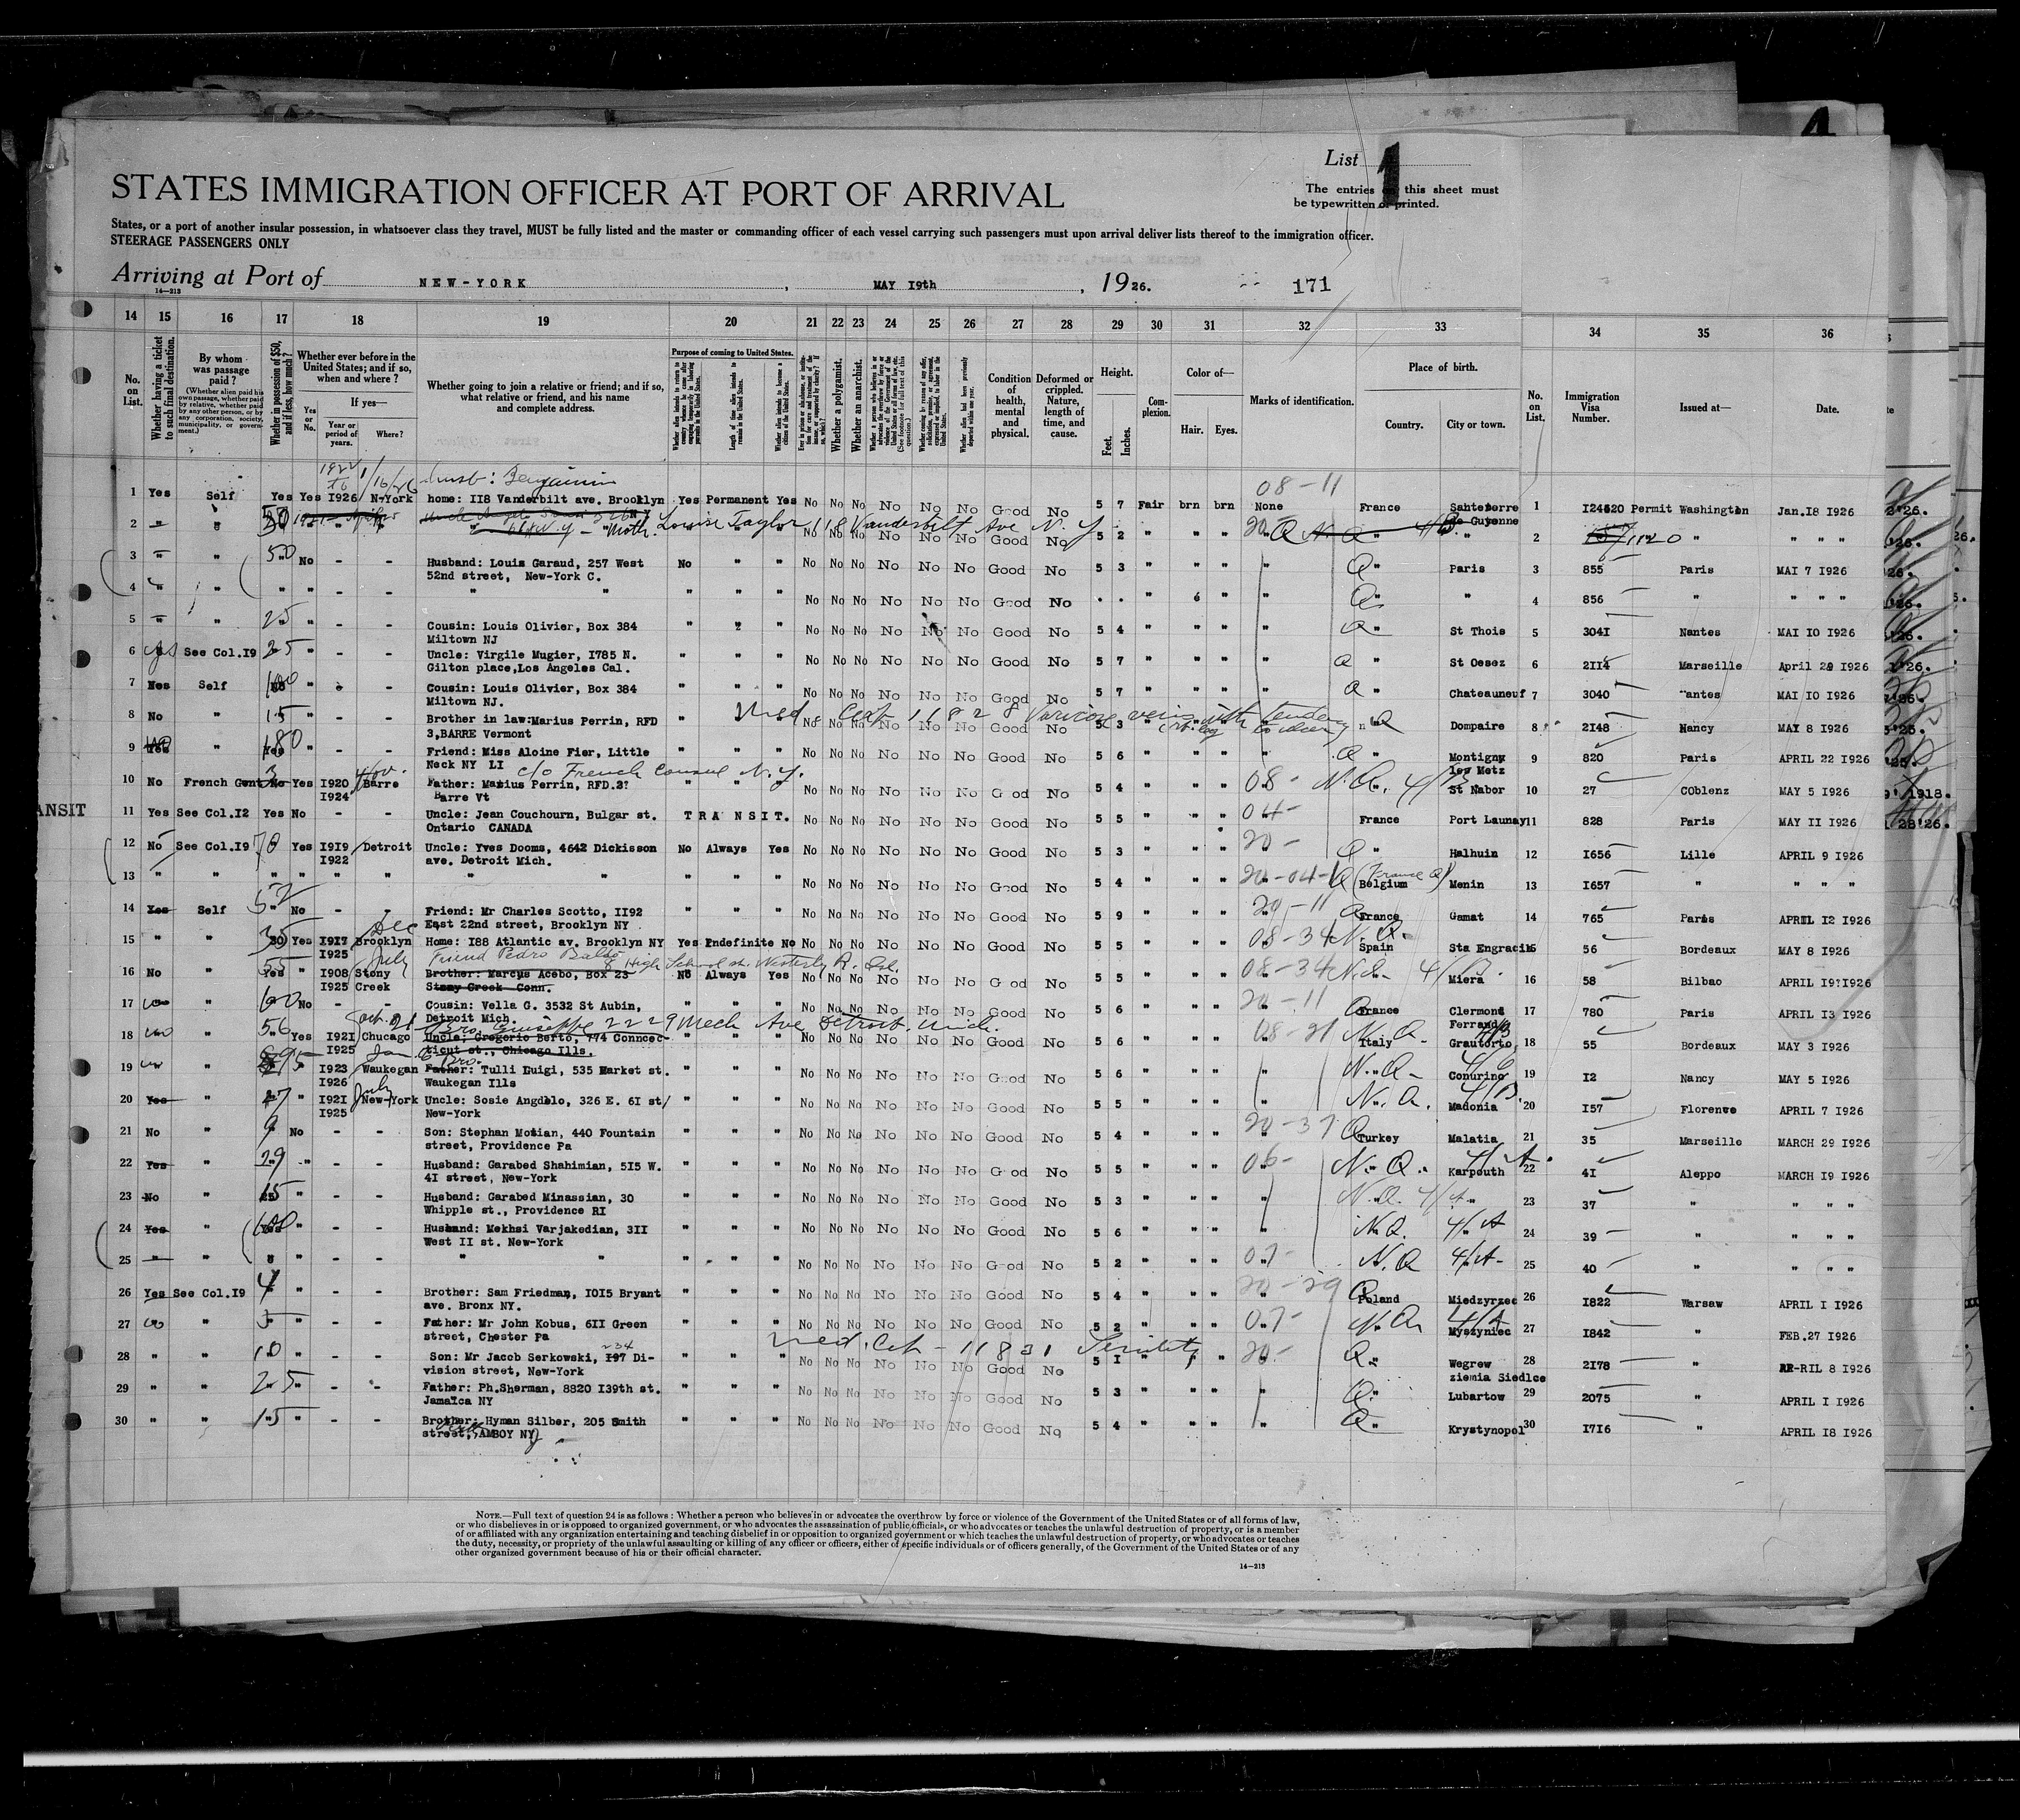 List 1
STATES IMMIGRATION OFFICER AT PORT OF ARRIVAL
The entries on this sheet must
be typewritten or printed.
States, or a port of another insular possession, in whatsoever class they travel, MUST be fully listed and the master or commanding officer of each vessel carrying such passengers must upon arrival deliver lists thereof to the immigration officer.
STEERAGE PASSENGERS ONLY
Arriving at Port of NEW-YORK, MAY I9th, 1926. 171
14—213
14 15 16 17 18 19 20 21 22 23 24 25 26 27 28 29 30 31 32 33 34 35 36
No. on List.
Whether having a ticket to such final destination.
By whom was passage paid?
(Whether alien paid his own passage, whether paid by relative, whether paid by any other person, or by any corporation, society, municipality, or government.)
Whether in possession of $50, and if less, how much?
Whether ever before in the United States; and if so, when and where?
If yes—
Yes or No.
Year or period of years.
Where?
Whether going to join a relative or friend; and if so, what relative or friend, and his name and complete address.
Purpose of coming to United States.
Length of time alien intends to remain in the United States.
Whether alien intends to become a citizen of the United States.
Whether a polygamist.
Whether an anarchist.
Condition of health, mental and physical.
Deformed or crippled. Nature, length of time, and cause.
Height.
Feet. Inches.
Complexion.
Color of—
Hair. Eyes.
Marks of identification.
Place of birth.
Country. City or town.
No. on List.
Immigration Visa Number.
Issued at—
Date.
1922 to 1/16/26 husb: Benjamin 08-11
1 Yes Self Yes Yes I926 N-York home: II8 Vanderbilt ave. Brooklyn Yes Permanent Yes No No No No No No Good No 5 7 Fair brn brn None France Santeterre de Guyenne 1 I24620 Permit Washington Jan.I8 I926
2 " " 50 Moth. Louise Taylor 118 Vanderbilt Ave N.Y. No No No No No No Good No 5 2 " " " " " " 2 1120 " " " "
3 " " 50 No - - Husband: Louis Garaud, 257 West No " " No No No No No No Good No 5 3 " " " " Q " Paris 3 855 Paris MAI 7 I926
52nd street, New-York C.
4 " " " " - - " " " " " No No No No No No Good No . . " " " " Q " " 4 856 " " " "
5 " " 25 " - - Cousin: Louis Olivier, Box 384 " 2 " No No No No No No Good No 5 4 " " " " Q " St Thois 5 304I Nantes MAI IO I926
Miltown NJ
6 yes See Col.I9 25 " - - Uncle: Virgile Mugier, I785 N. " " " No No No No No No Good No 5 7 " " " " Q " St Oesez 6 2II4 Marseille April 29 I926
Gilton place,Los Angeles Cal.
7 Yes Self 100 " - - Cousin: Louis Olivier, Box 384 " " " No No No No No No Good No 5 7 " " " " Q " Chateauneuf 7 3040 Nantes MAI IO I926
Miltown NJ.
Med. Cert 11828 Varicose veins with tendency to ulcer
8 No " 15 " - - Brother in law:Marius Perrin, RFD " No No No No No No Good No 5 3 Q Dompaire 8 2I48 Nancy MAY 8 I926
3,BARRE Vermont
9 Yes " 180 " - - Friend: Miss Aloine Fier, Little " " " No No No No No No Good No 5 6 " " " " Q " Montigny les Metz 9 820 Paris APRIL 22 I926
Neck NY LI c/o French Consul N.Y.
10 No French Gvnt 3 Yes I920 I924 Barre Father: Marius Perrin, RFD.3? " " " No No No No No No Good No 5 4 " " " 08- N.Q. 4/B St Nabor 10 27 COblenz MAY 5 I926
Barre Vt
ANSIT 11 Yes See Col.I2 Yes No - - Uncle: Jean Couchourn, Bulgar st. TRANSIT. No No No No No No Good No 5 5 " " " 04- France Port Launay 11 828 Paris MAY II I926
Ontario CANADA
12 No See Col.I9 70 Yes I9I9 I922 Detroit Uncle: Yves Dooms, 4642 Dickisson No Always Yes No No No No No No Good No 5 3 " " " 20- Q " Halhuin 12 I656 Lille APRIL 9 I926
ave. Detroit Mich.
13 " " " " " " " " " " " No No No No No No Good No 5 4 " " " 20-04-1 Q (France Q) Belgium Menin 13 I657 " " " "
14 Yes Self 52 No - - Friend: Mr Charles Scotto, II92 " " " No No No No No No Good No 5 9 " " " 20-11 Q France Gamat 14 765 Paris APRIL I2 I926
East 22nd street, Brooklyn NY
15 " " 35 Yes I9I7 I925 Dec Brooklyn Home: I88 Atlantic av. Brooklyn NY Yes Indefinite No No No No No No No Good No 5 5 " " " 08-34 N.Q. Spain Sta Engracia 15 56 Bordeaux MAY 8 I926
Friend Pedro Balbo 8 High School st. Westerly R. Isl.
16 No " 55 " I908 I925 July Stony Creek Brother: Marcus Acebo, Box 23 No Always Yes No No No No No No Good No 5 5 " " " 08-34 N.Q. 4/B. " Miera 16 58 Bilbao APRIL I9!I926
Stony Creek Conn.
17 " 60 No - - Cousin: Vella G. 3532 St Aubin, " " " No No No No No No Good No 5 6 " " " 20-11 Q France Clermond Ferrand 17 780 Paris APRIL I3 I926
Detroit Mich.
Bro. Giuseppe 2229 Mech Ave Detroit. Mich.
18 " 56 Yes I92I I925 Oct. 21 Chucago Uncle; Gregorio Berto, 774 Conncec- " " " No No No No No No Good No 5 6 " " " 08-21 N.Q. Italy Grautorto 18 55 Bordeaux MAY 3 I926
ticut st., Chicago Ills.
19 " 95 " I923 I926 Jan Waukegan Bro. Father: Tulli Luigi, 535 Market st. " " " No No No No No No Good No 5 6 " " " N.Q. Conurino 19 I2 Nancy MAY 5 I926
Waukegan Ills
20 Yes " 47 " I92I I925 July New-York Uncle: Sosie Angdelo, 326 E. 6I st/ " " " No No No No No No Good No 5 5 " " " N.Q. 4/B. Madonia 20 I57 Florence APRIL 7 I926
New-York
21 No " 9 No - - Son: Stephan Motian, 440 Fountain " " " No No No No No No Good No 5 4 " " " 20-37 Q Turkey Malatia 21 35 Marseille MARCH 29 I926
street, Providence Pa
22 Yes " 29 " - - Husband: Garabed Shahimian, 5I5 W. " " " No No No No No No Good No 5 5 " " " 06- N.Q. 4/A. Karpouth 22 4I Aleppo MARCH I9 I926
4I street, New-York
23 No " 15 " - - Husband: Garabed Minassian, 30 " " " No No No No No No Good No 5 3 " " " " N.Q. 4/A " 23 37 " " " "
Whipple st., Providence RI
24 Yes " 100 " - - Husband: Mekhsi Varjakedian, 3II " " " No No No No No No Good No 5 6 " " " " N.Q. 4/A 24 39 " " " "
West II st. New-York
25 " " " " - - " " " " " No No No No No No Good No 5 2 " " " 07- N.Q 4/A- 25 40 " " " "
26 Yes See Col.I9 4 " - - Brother: Sam Friedman, IOI5 Bryant " " " No No No No No No Good No 5 4 " " " 20-29 Q Poland Miedzyrzec 26 I822 Warsaw APRIL I I926
ave. Bronx NY.
27 " 5 " - - Father: Mr John Kobus, 6II Green " " " No No No No No No Good No 5 2 " " " 07- N.Q. 4/A Myszyniec 27 I842 " FEB.27 I926
street, Chester Pa
Med. Cert - 11831 Senility
28 " " 10 " - - Son: Mr Jacob Serkowski, I97 234 Di- " " " No No No No No No Good No 5 I " " " 20- Q " Wegrew ziemia Siedlce 28 2I78 " AP-RIL 8 I926
vision street, New-York
29 " " 25 " - - Father: Ph.Sherman, 8820 I39th st. " " " No No No No No No Good No 5 3 " " " " Q " Lubartow 29 2075 " APRIL I I926
Jamaica NY
30 " " 15 " - - Brother: Hyman Silber, 205 Smith " " " No No No No No No Good No 5 4 " " " " Q " Krystynopol 30 I7I6 " APRIL I8 I926
street, Perth AMBOY NY
NOTE.—Full text of question 24 is as follows: Whether a person who believes in or advocates the overthrow by force or violence of the Government of the United States or of all forms of law,
or who disbelieves in or is opposed to organized government, or who advocates the assassination of public officials, or who advocates or teaches the unlawful destruction of property, or is a member
of or affiliated with any organization entertaining and teaching disbelief in or opposition to organized government or which teaches the unlawful destruction of property, or who advocates or teaches
the duty, necessity, or propriety of the unlawful assaulting or killing of any officer or officers, either of specific individuals or of officers generally, of the Government of the United States or of any
other organized government because of his or their official character.
14—213